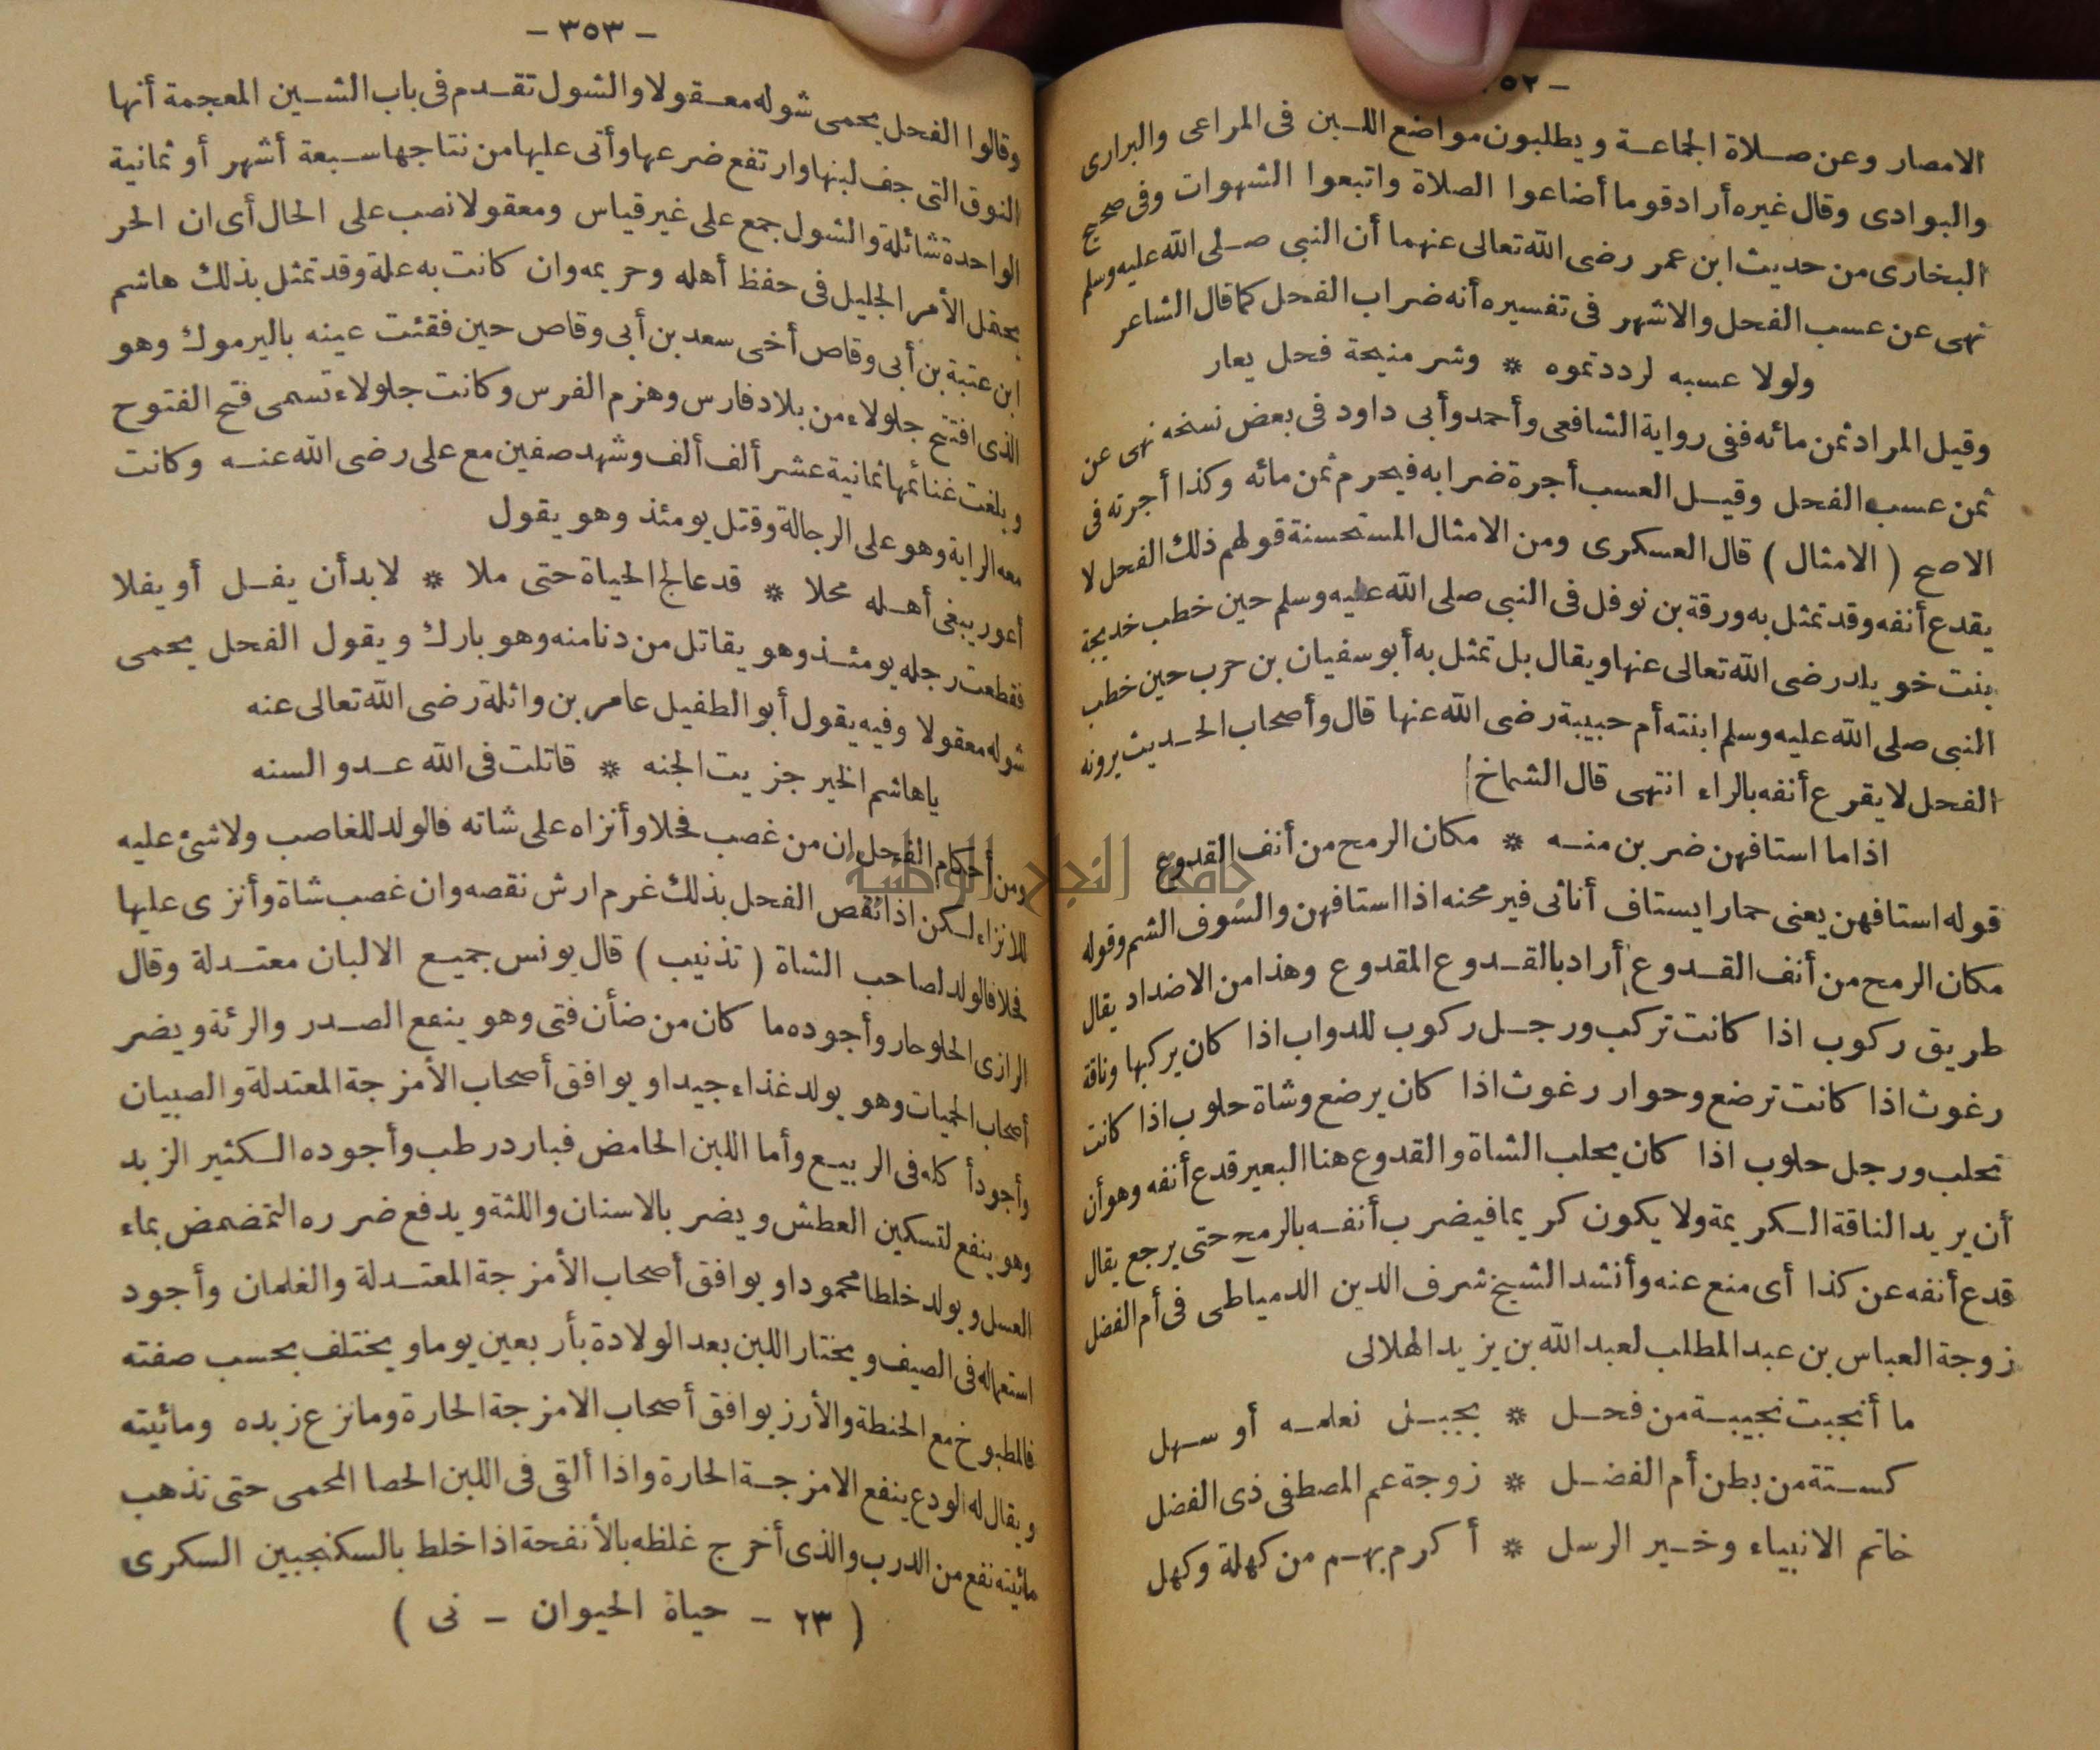 - ٣٥٢ -
الامصار وعن صلاة الجماعة ويطلبون مواضع اللبن فى المراعى والبرارى
والبوادى وقال غيره أراد قوما أضاعوا الصلاة واتبعوا الشهوات وفى صحيح
البخارى من حديث ابن عمر رضى الله تعالى عنهما أن النبى صلى الله عليه وسلم
نهى عن عسب الفحل والاشهر فى تفسيره أنه ضراب الفحل كما قال الشاعر
ولولا عسبه لرددتموه * وشر منيحة فحل يعار
وقيل المراد ثمن مائه ففى رواية الشافعى وأحمد وأبى داود فى بعض نسخه نهى عن
ثمن عسب الفحل وقيل العسب أجرة ضرابه فيحرم ثمن مائه وكذا أجرته فى
الاصح ( الامثال ) قال العسكرى ومن الامثال المستحسنة قولهم ذلك الفحل لا
يقدع أنفه وقد تمثل به ورقة بن نوفل فى النبى صلى الله عليه وسلم حين خطب خديجة
بنت خويلد رضى الله تعالى عنها ويقال بل تمثل به أبو سفيان بن حرب حين خطب
النبى صلى الله عليه وسلم ابنته أم حبيبة رضى الله عنها قال وأصحاب الحديث يرونه
الفحل لا يقرع أنفه بالراء انتهى قال الشماخ
اذا ما استافهن ضربن منه * مكان الرمح من أنف القدوع
قوله استافهن يعنى حمارا يستاف أناثى فيرمحنه اذا استافهن والسوف الشم وقوله
مكان الرمح من أنف القدوع أراد بالقدوع المقدوع وهذا من الاضداد يقال
طريق ركوب اذا كانت تركب ورجل ركوب للدواب اذا كان يركبها وناقة
رغوث اذا كانت ترضع وحوار رغوث اذا كان يرضع وشاة حلوب اذا كانت
تحلب ورجل حلوب اذا كان يحلب الشاة والقدوع هنا البعير قدع أنفه وهو أن
أن يريد الناقة الكريمة ولا يكون كريما فيضرب أنفه بالرمح حتى يرجع يقال
قدع أنفه عن كذا أى منع عنه وأنشد الشيخ شرف الدين الدمياطى فى أم الفضل
زوجة العباس بن عبد المطلب لعبد الله بن يزيد الهلالى
ما أنجبت نجيبة من فحل * بجبل نعلمه أو سهل
كستة من بطن أم الفضل * زوجة عم المصطفى ذى الفضل
خاتم الانبياء وخير الرسل * أكرم بهم من كهلة وكهل
- ٣٥٣ -
وقالوا الفحل يحمى شوله معقولا والشول تقدم فى باب الشين المعجمة أنها
النوق التى جف لبنها وارتفع ضرعها وأتى عليها من نتاجها سبعة أشهر أو ثمانية
الواحدة شائلة والشول جمع على غير قياس ومعقولا نصب على الحال أى ان الحر
يحتمل الأمر الجليل فى حفظ أهله وحريمه وان كانت به علة وقد تمثل بذلك هاشم
ابن عتبة بن أبى وقاص أخى سعد بن أبى وقاص حين فقئت عينه باليرموك وهو
الذى افتتح جلولاء من بلاد فارس وهزم الفرس وكانت جلولاء تسمى فتح الفتوح
وبلغت غنائمها ثمانية عشر ألف ألف وشهد صفين مع على رضى الله عنه وكانت
معه الراية وهو على الرجالة وقتل يومئذ وهو يقول
أعور يبغى أهله محلا * قد عالج الحياة حتى ملا * لابد أن يفل أو يفلا
فقطعت رجله يومئذ وهو يقاتل من دنا منه وهو بارك ويقول الفحل يحمى
شوله معقولا وفيه يقول أبو الطفيل عامر بن واثلة رضى الله تعالى عنه
ياهاشم الخير جزيت الجنه * قاتلت فى الله عدو السنه
ومن أحكام الفحل ان من غصب فحلا وأنزاه على شاته فالولد للغاصب ولا شئ عليه
للانزاء لكن اذا نقص الفحل بذلك غرم ارش نقصه وان غصب شاة وأنزى عليها
فحلا فالولد لصاحب الشاة ( تذنيب ) قال يونس جميع الالبان معتدلة وقال
الرازى الحلو حار وأجوده ما كان من ضأن فتى وهو ينفع الصدر والرئة ويضر
أصحاب الحميات وهو يولد غذاء جيدا ويوافق أصحاب الأمزجة المعتدلة والصبيان
وأجود أكله فى الربيع وأما اللبن الحامض فبارد رطب وأجوده الكثير الزبد
وهو ينفع لتسكين العطش ويضر بالاسنان واللثة ويدفع ضرره التمضمض بماء
العسل ويولد خلطا محمودا ويوافق أصحاب الأمزجة المعتدلة والغلمان وأجود
استعماله فى الصيف ويختار اللبن بعد الولادة بأربعين يوما ويختلف بحسب صفته
فالمطبوخ مع الحنطة والأرز يوافق أصحاب الامزجة الحارة وما نزع زبده ومائيته
ويقال له الودع ينفع الامزجة الحارة واذا ألقى فى اللبن الحصا المحمى حتى تذهب
مائيته نفع من الدرب والذى أخرج غلظه بالأنفحة اذا خلط بالسكنجبين السكرى
( ٢٣ - حياة الحيوان - نى )
جامعة النجاح الوطنية